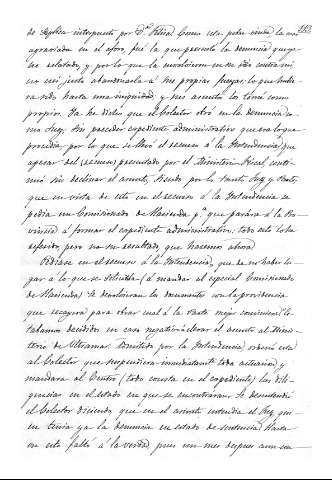 113
de Septbre interpuesto por Dª Petra Como esta pobre viuda la mas
agraviada en el aforo, fue la que presentó la denuncia que ya
he relatado, y por lo que la envolvieron en su odio contra mi
no creí justo abandonarla á sus propias fuerzas, lo que hubie-
ra sido hasta una iniquidad, y sus asuntos los tomé como
propios. Ya he dicho que el Colector obró en la denuncia co-
mo Juez, sin preceder expediente administrativo que era lo que
procedia por lo que se llevó el recurso á la Intendencia que
apesar del recurso presentado por el Ministerio fiscal, conti-
nuó sin declinar el asunto, siendo por lo tanto Juez y Parte
que en vista de esto en el recurso á la Intendencia se
pedia un Comisionado de Hacienda pª que pasára á la Pro-
vincia á formar el expediente administrativo: todo esto lo he
referido, pero no su resultado, que hacemos ahora
Pidióse en el recurso á la Intendencia, que de no haber lu-
gar á lo que se solicitaba (á mandar al especial Comisionado
de Hacienda) se devolvieran los documentos con la providencia
que recayera para obrar cual á la Parte mejor conviniere. Es-
tabamos decididos en caso negativo á llevar el asunto al Minis-
terio de Ultramar. Admitido por la Intendencia ordenó esta
al Colector que suspendiera inmediatamte toda actuacion y
mandara al Centro (todo consta en el expediente) las dili-
gencias en el estado en que se encontraran. Se desentendió
el Colector diciendo que en el asunto entendia el Juez qui-
en tenia ya la denuncia en estado de sentencia. Hasta
en esto faltó á la verdad pues un mes despues aun se